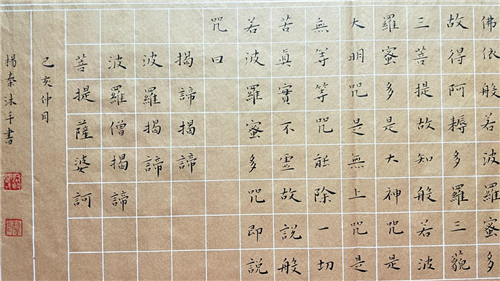 佛依般若波羅蜜多
故得阿耨多羅三藐
三菩提故知般若波
羅蜜多是大神咒是
大明咒是無上咒是
無等等咒能除一切
苦眞實不虛故說般
若波羅蜜多咒即說
咒曰
揭諦揭諦
波羅揭諦
波羅僧揭諦
菩提薩婆訶
己亥仲
楊秦沐手書